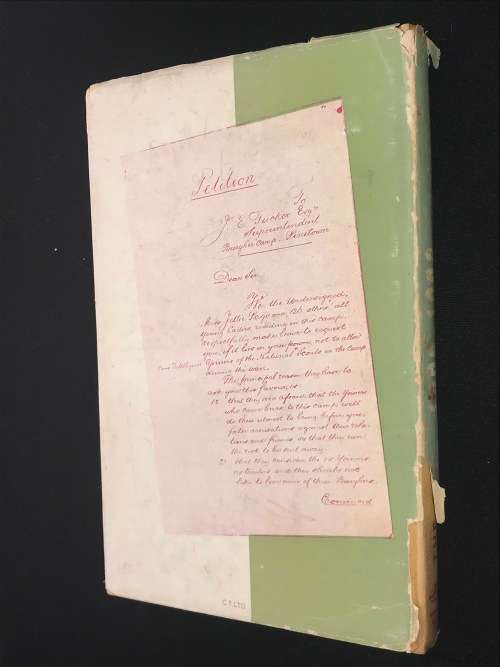 Petition
To
J. E. Tucker Esqre
Superintendent
Burgher Camp
Dear Sir
We the Undersigned,
Miss and others all
young Ladies residing in this Camp,
respectfully make leave to request
you, if it lies in your power, not to allow
of the "National" Scouts in the Camp
during the war.
The principal reason they have to
ask your this favour, is
1: that they are afraid that the
who come back to this camp will
do their utmost to bring before you
false accusations against their rela-
tions and friends so that they run
the risk to be sent away.
2: that they consider the
as traitors and they should not
like to have any of their Burghers.
Command
C.T.LTD.